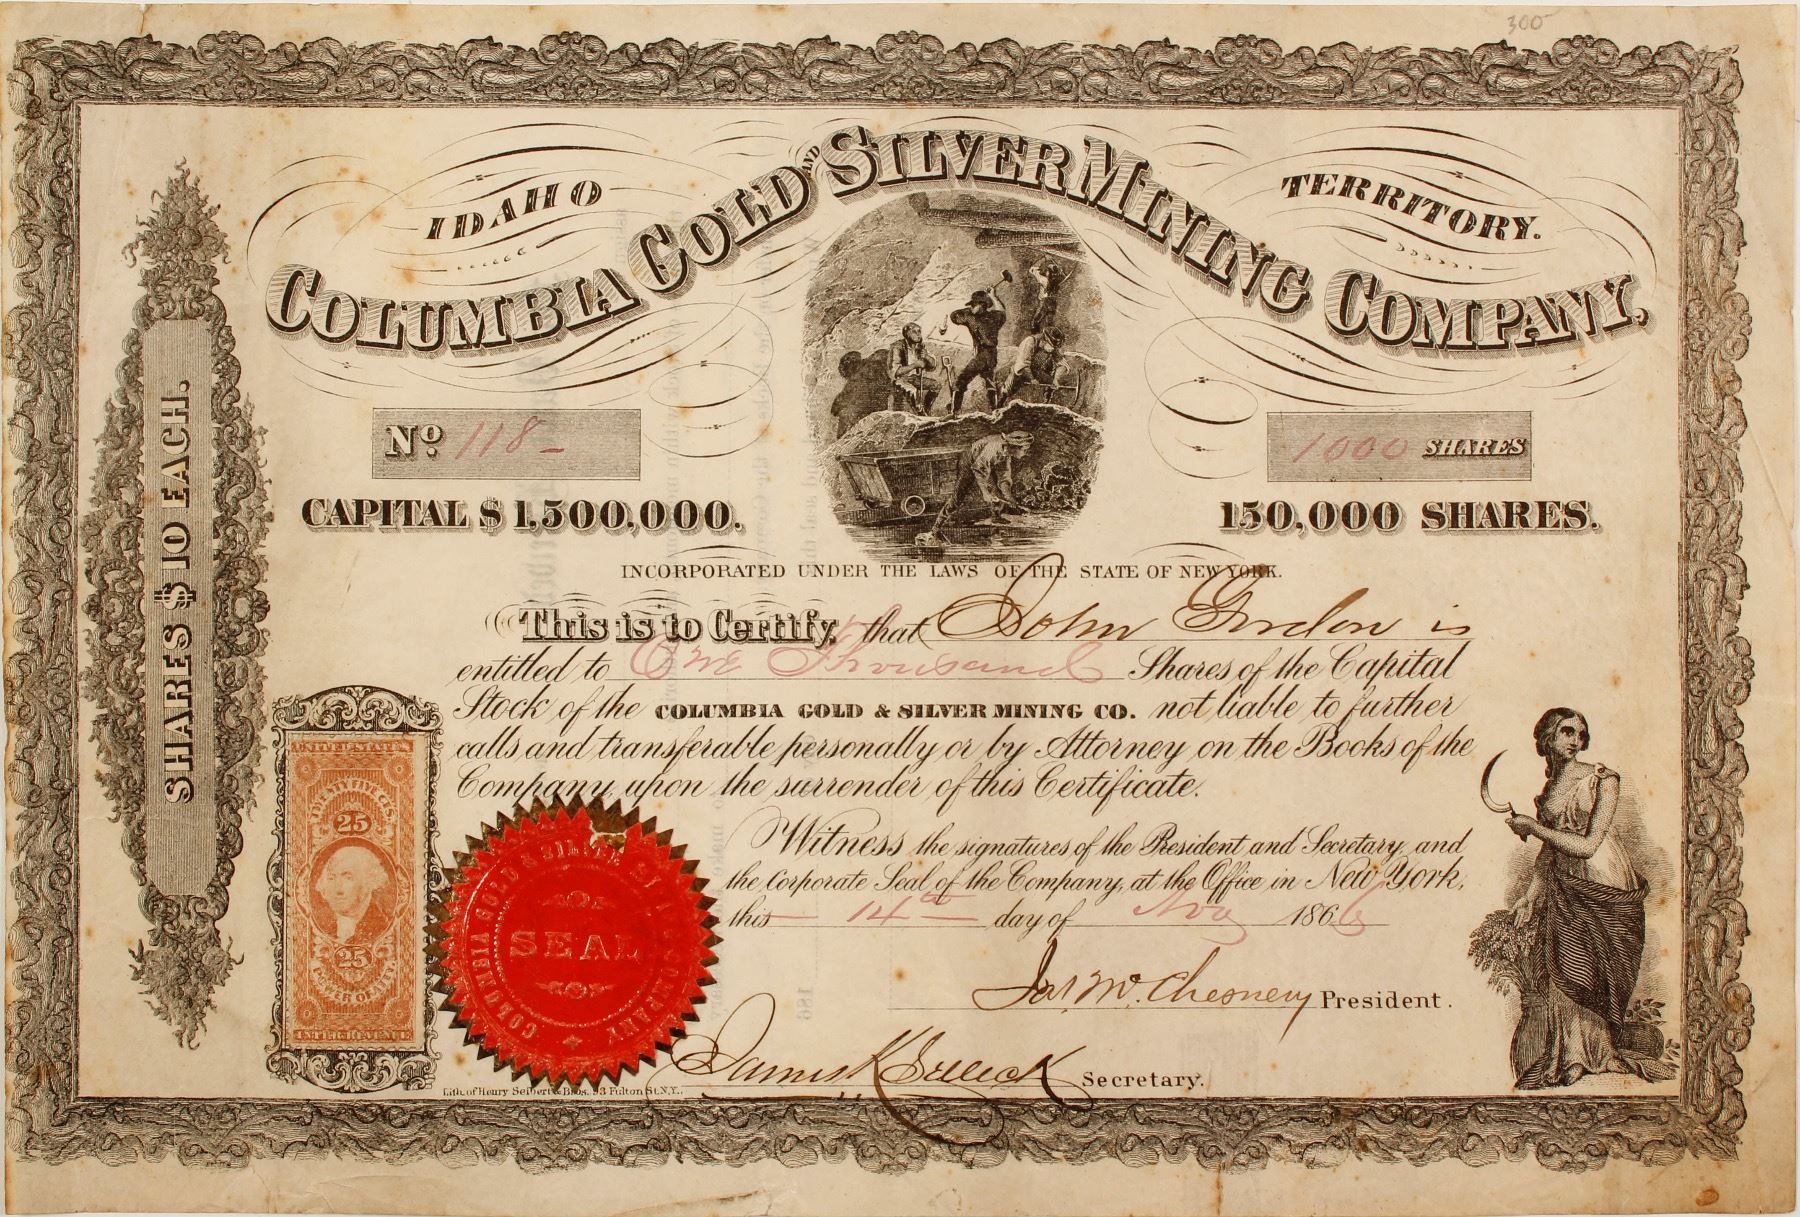 300
IDAHO TERRITORY.
COLUMBIA GOLD AND SILVER MINING COMPANY,
No 118 -
1000 SHARES
CAPITAL $ 1,500,000.
150,000 SHARES.
SHARES $ 10 EACH.
INCORPORATED UNDER THE LAWS OF THE STATE OF NEW YORK.
This is to Certify, that John Gordon is
entitled to One Thousand Shares of the Capital
Stock of the COLUMBIA GOLD & SILVER MINING CO. not liable to further
calls and transferable personally or by Attorney on the Books of the
Company upon the surrender of this Certificate.
Witness the signatures of the President and Secretary, and
the Corporate Seal of the Company, at the Office in New York,
this 14th day of 1866
UNITED STATES
TWENTY FIVE CTS.
25
25
POWER OF ATT'Y.
INTER. REVENUE
COLUMBIA GOLD & SILVER COMPANY
SEAL
Jas. McChesney President.
Secretary.
Lith. of Henry Seibert & Bros. 93 Fulton St. N.Y.